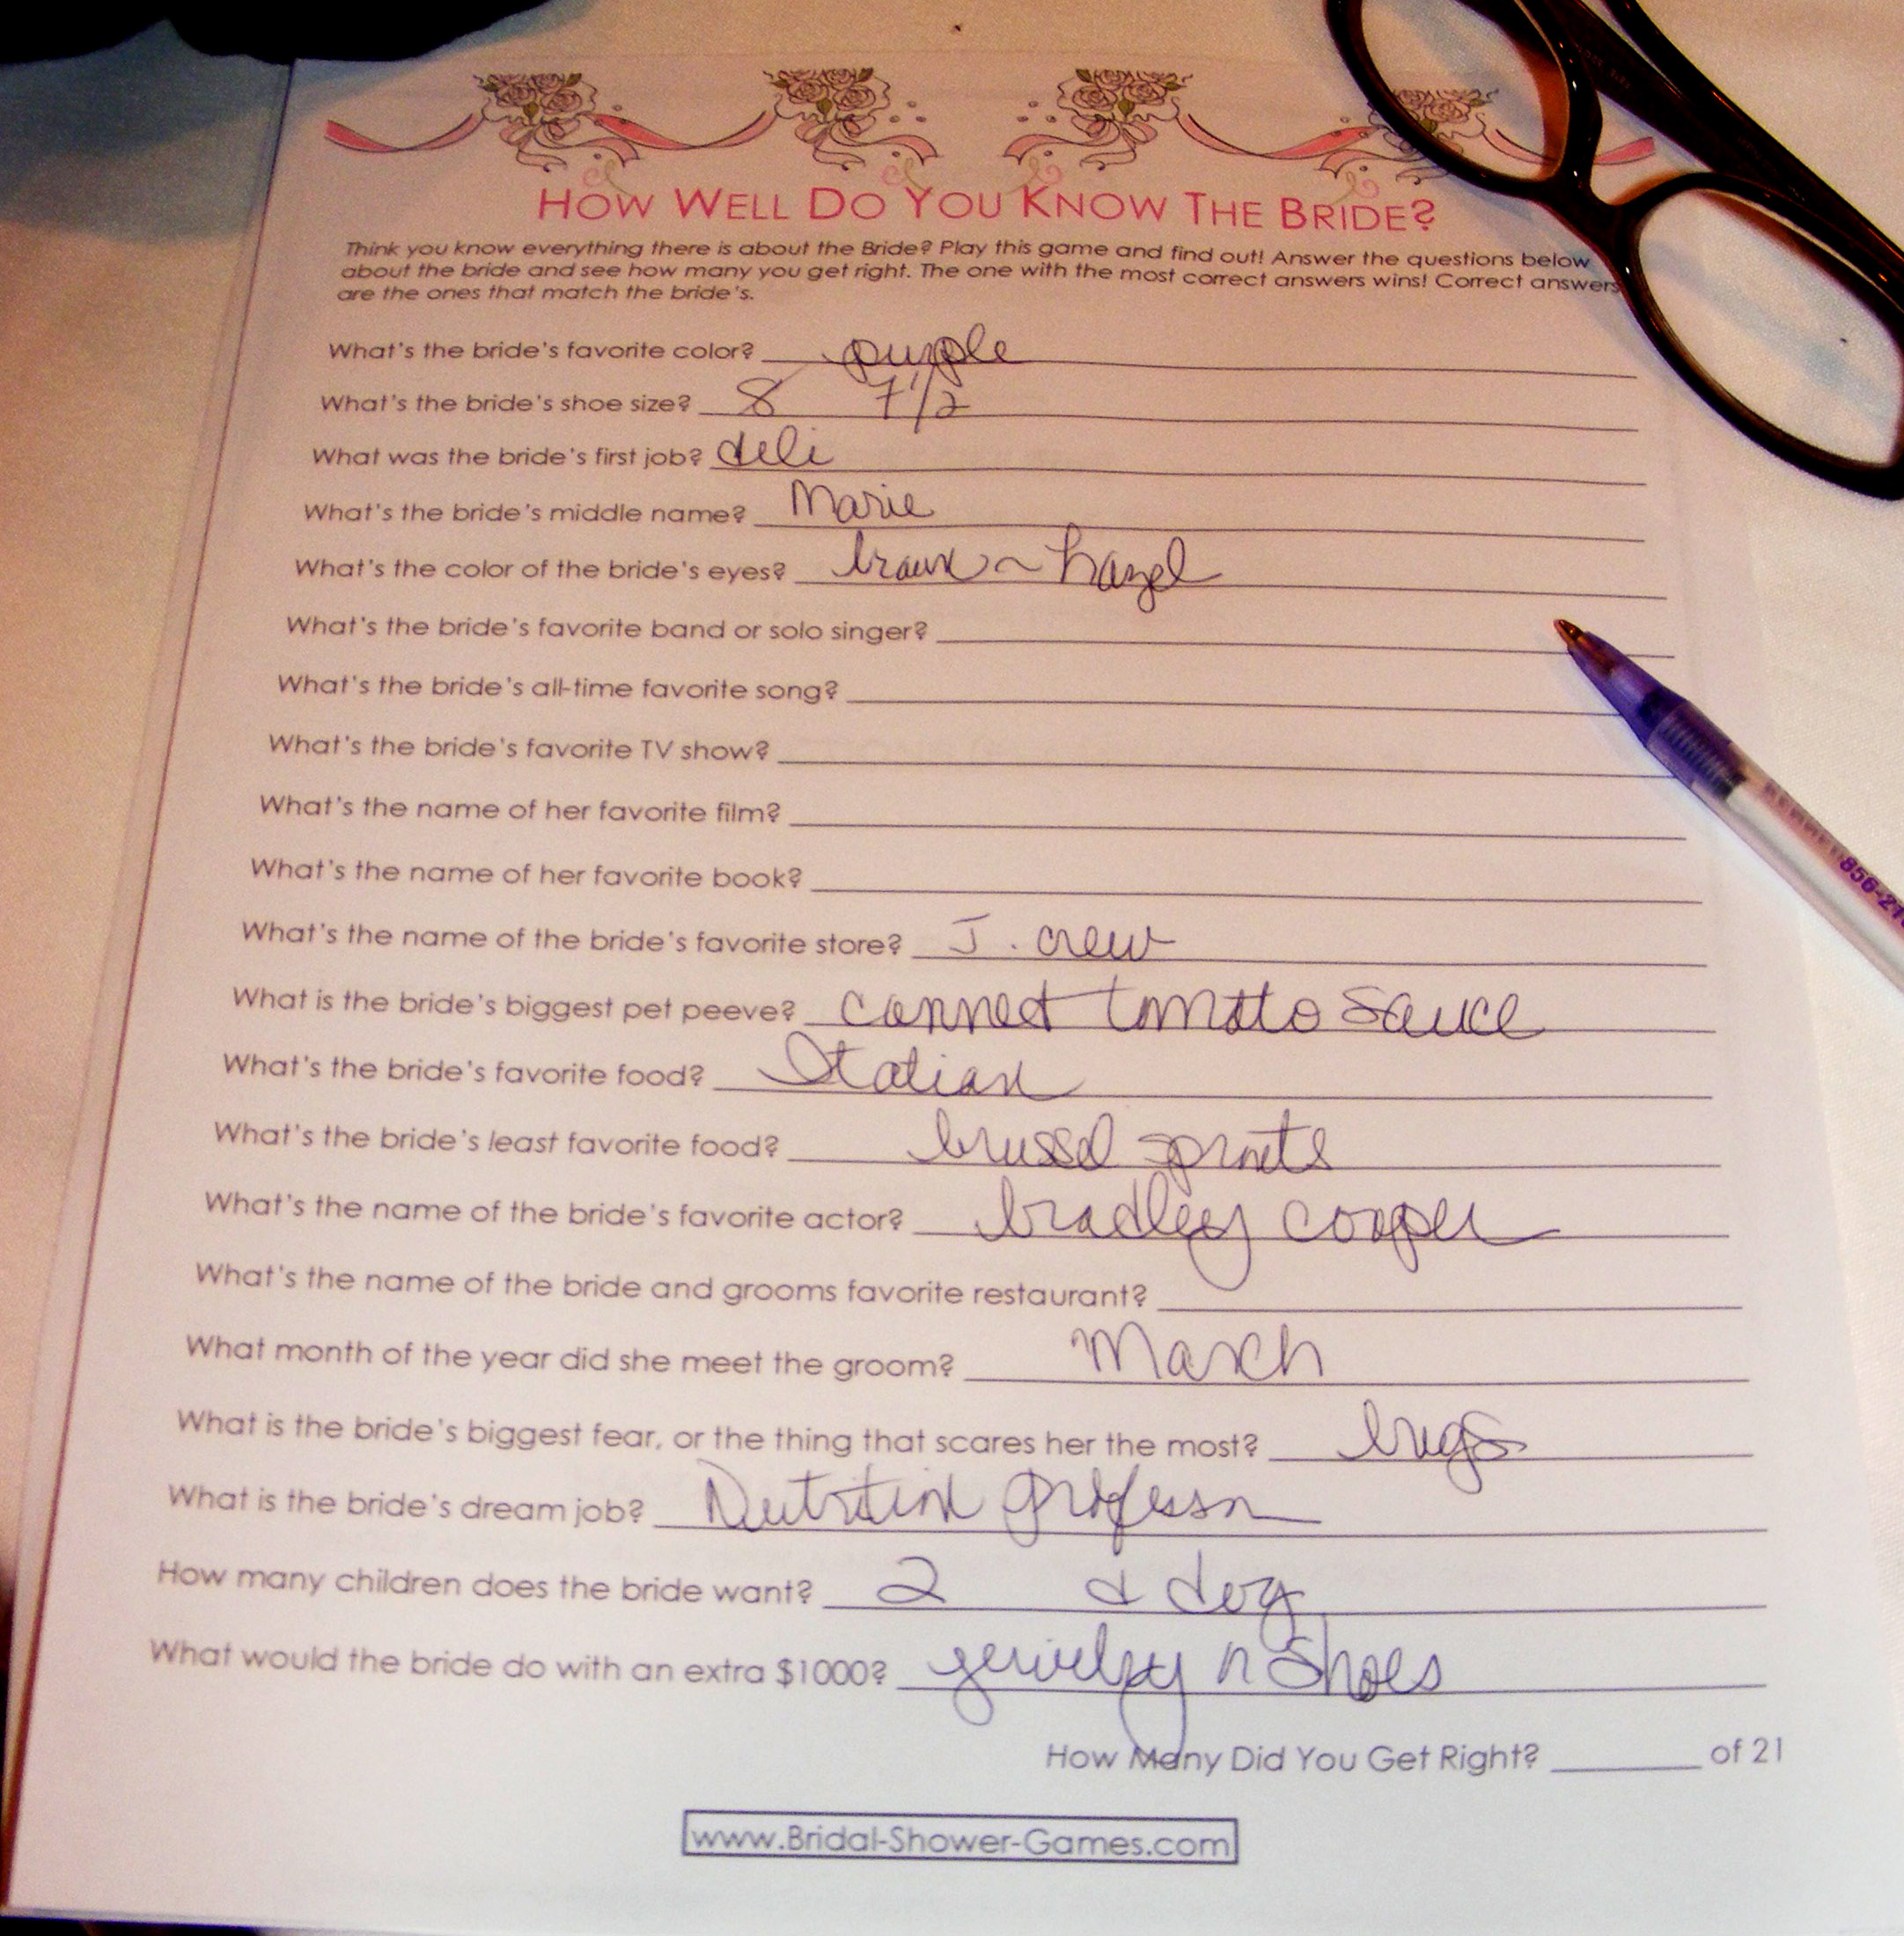 HOW WELL DO YOU KNOW THE BRIDE?
Think you know everything there is about the Bride? Play this game and find out! Answer the questions below
about the bride and see how many you get right. The one with the most correct answers wins! Correct answers
are the ones that match the bride's.
What's the bride's favorite color? purple
What's the bride's shoe size? 8 7 1/2
What was the bride's first job? deli
What's the bride's middle name? Marie
What's the color of the bride's eyes? brown ~ hazel
What's the bride's favorite band or solo singer?
What's the bride's all-time favorite song?
What's the bride's favorite TV show?
What's the name of her favorite film?
What's the name of her favorite book?
What's the name of the bride's favorite store? J. crew
What is the bride's biggest pet peeve? canned tomato sauce
What's the bride's favorite food? Italian
What's the bride's least favorite food? brussel sprouts
What's the name of the bride's favorite actor? bradley cooper
What's the name of the bride and grooms favorite restaurant?
What month of the year did she meet the groom? March
What is the bride's biggest fear, or the thing that scares her the most? bugs
What is the bride's dream job? Nutrition professor
How many children does the bride want? 2 & dog
What would the bride do with an extra $1000? jewelry n shoes
How Many Did You Get Right? of 21
www.Bridal-Shower-Games.com